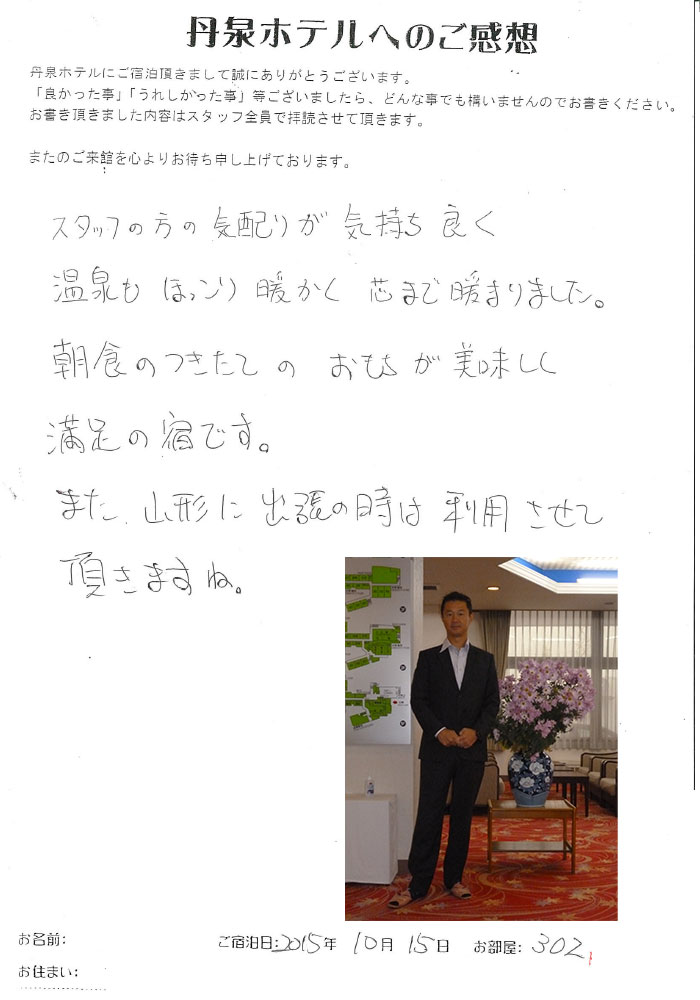 丹泉ホテルへのご感想
丹泉ホテルにご宿泊頂きまして誠にありがとうございます。
「良かった事」「うれしかった事」等ございましたら、どんな事でも構いませんのでお書きください。
お書き頂きました内容はスタッフ全員で拝読させて頂きます。
またのご来館を心よりお待ち申し上げております。
スタッフの方の気配りが気持ち良く
温泉もほっこり暖かく芯まで暖まりました。
朝食のつきたてのおもちが美味しく
満足の宿です。
また、山形に出張の時は利用させて
頂きますね。
お名前:
ご宿泊日:2015年10月15日 お部屋:302
お住まい: